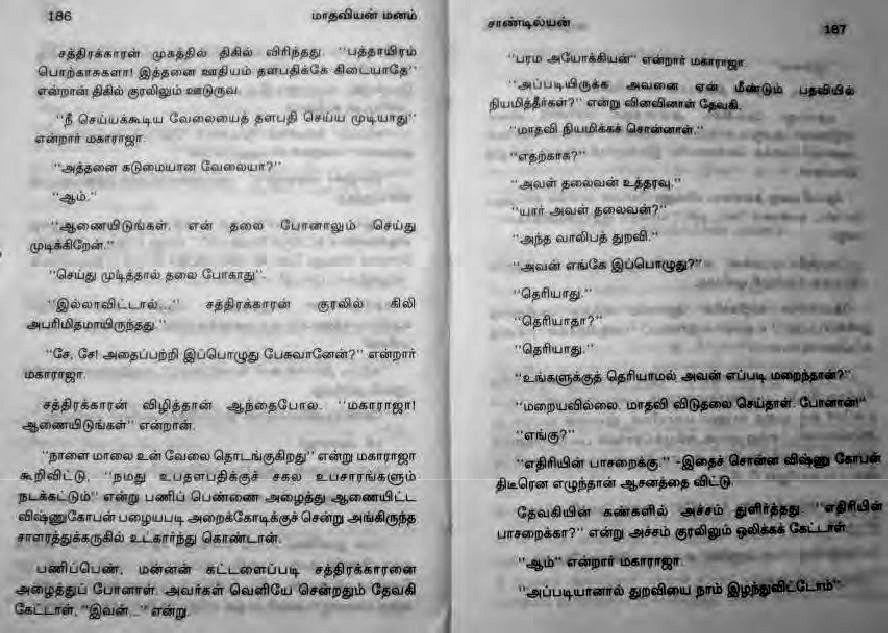 186 மாதவியன் மனம்
சத்திரக்காரன் முகத்தில் திகில் விரிந்தது. "பத்தாயிரம்
பொற்காசுகளா! இத்தனை ஊதியம் தளபதிக்கே கிடையாதே"
என்றான் திகில் குரலிலும் ஊடுருவ.
"நீ செய்யக்கூடிய வேலையைத் தளபதி செய்ய முடியாது"
என்றார் மகாராஜா.
"அத்தனை கடுமையான வேலையா?"
"ஆம்."
"ஆணையிடுங்கள். என் தலை போனாலும் செய்து
முடிக்கிறேன்."
"செய்து முடித்தால் தலை போகாது".
"இல்லாவிட்டால்..." சத்திரக்காரன் குரலில் கிலி
அபரிமிதமாயிருந்தது."
"சே, சே! அதைப்பற்றி இப்பொழுது பேசுவானேன்?" என்றார்
மகாராஜா.
சத்திரக்காரன் விழித்தான் ஆந்தைபோல. "மகாராஜா!
ஆணையிடுங்கள்" என்றான்.
"நாளை மாலை உன் வேலை தொடங்குகிறது" என்று மகாராஜா
கூறிவிட்டு, "நமது உபதளபதிக்குச் சகல உபசாரங்களும்
நடக்கட்டும்" என்று பணிப் பெண்ணை அழைத்து ஆணையிட்ட
விஷ்ணுகோபன் பழையபடி அறைக்கோடிக்குச் சென்று அங்கிருந்த
சாளரத்துக்கருகில் உட்கார்ந்து கொண்டான்.
பணிப்பெண், மன்னன் கட்டளைப்படி சத்திரக்காரனை
அழைத்துப் போனாள். அவர்கள் வெளியே சென்றதும் தேவகி
கேட்டாள், "இவன்..." என்று.
சாண்டில்யன் 187
"பரம அயோக்கியன்" என்றார் மகாராஜா.
"அப்படியிருக்க அவனை ஏன் மீண்டும் பதவியில்
நியமித்தீர்கள்?" என்று வினவினாள் தேவகி.
"மாதவி நியமிக்கச் சொன்னாள்."
"எதற்காக?"
"அவள் தலைவன் உத்தரவு."
"யார் அவள் தலைவன்?"
"அந்த வாலிபத் துறவி."
"அவன் எங்கே இப்பொழுது?"
"தெரியாது."
"தெரியாதா?"
"தெரியாது."
"உங்களுக்குத் தெரியாமல் அவன் எப்படி மறைந்தான்?"
"மறையவில்லை. மாதவி விடுதலை செய்தாள். போனான்!"
"எங்கு?"
"எதிரியின் பாசறைக்கு." -இதைச் சொன்ன விஷ்ணு கோபன்
திடீரென எழுந்தான் ஆசனத்தை விட்டு.
தேவகியின் கண்களில் அச்சம் துளிர்த்தது. "எதிரியின்
பாசறைக்கா?" என்று அச்சம் குரலிலும் ஒலிக்கக் கேட்டாள்.
"ஆம்" என்றார் மகாராஜா.
"அப்படியானால் துறவியை நாம் இழந்துவிட்டோம்"